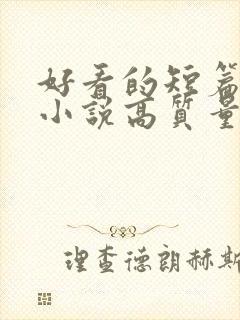 好看的短篇
小說高質量
理查德朗赫斯